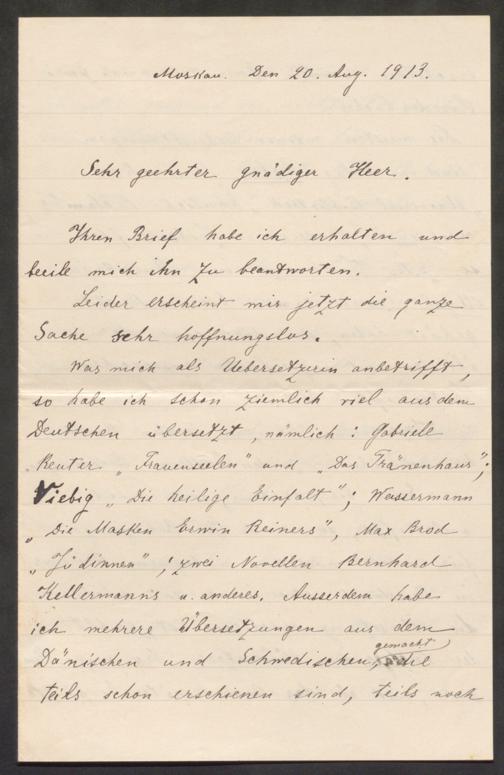 Moskau. Den 20. Aug. 1913.
Sehr geehrter gnädiger Heer.
Ihren Brief habe ich erhalten und
beeile mich ihn zu beantworten.
Leider erscheint mir jetzt die ganze
Sache sehr hoffnungslos.
Was mich als Uebersetzerin anbetrifft,
so habe ich schon ziemlich viel aus dem
Deutschen übersetzt, nämlich: Gabriele
Reuter „Frauenseelen" und „Das Tränenhaus";
Viebig „Die heilige Einfalt"; Wassermann
„Die Masken Erwin Reiners", Max Brod
„Jüdinnen"; zwei Novellen Bernhard
Kellermanns u. anderes. Ausserdem habe
ich mehrere Übersetzungen aus dem
gemacht
Dänischen und Schwedischen,
teils schon erschienen sind, teils noch